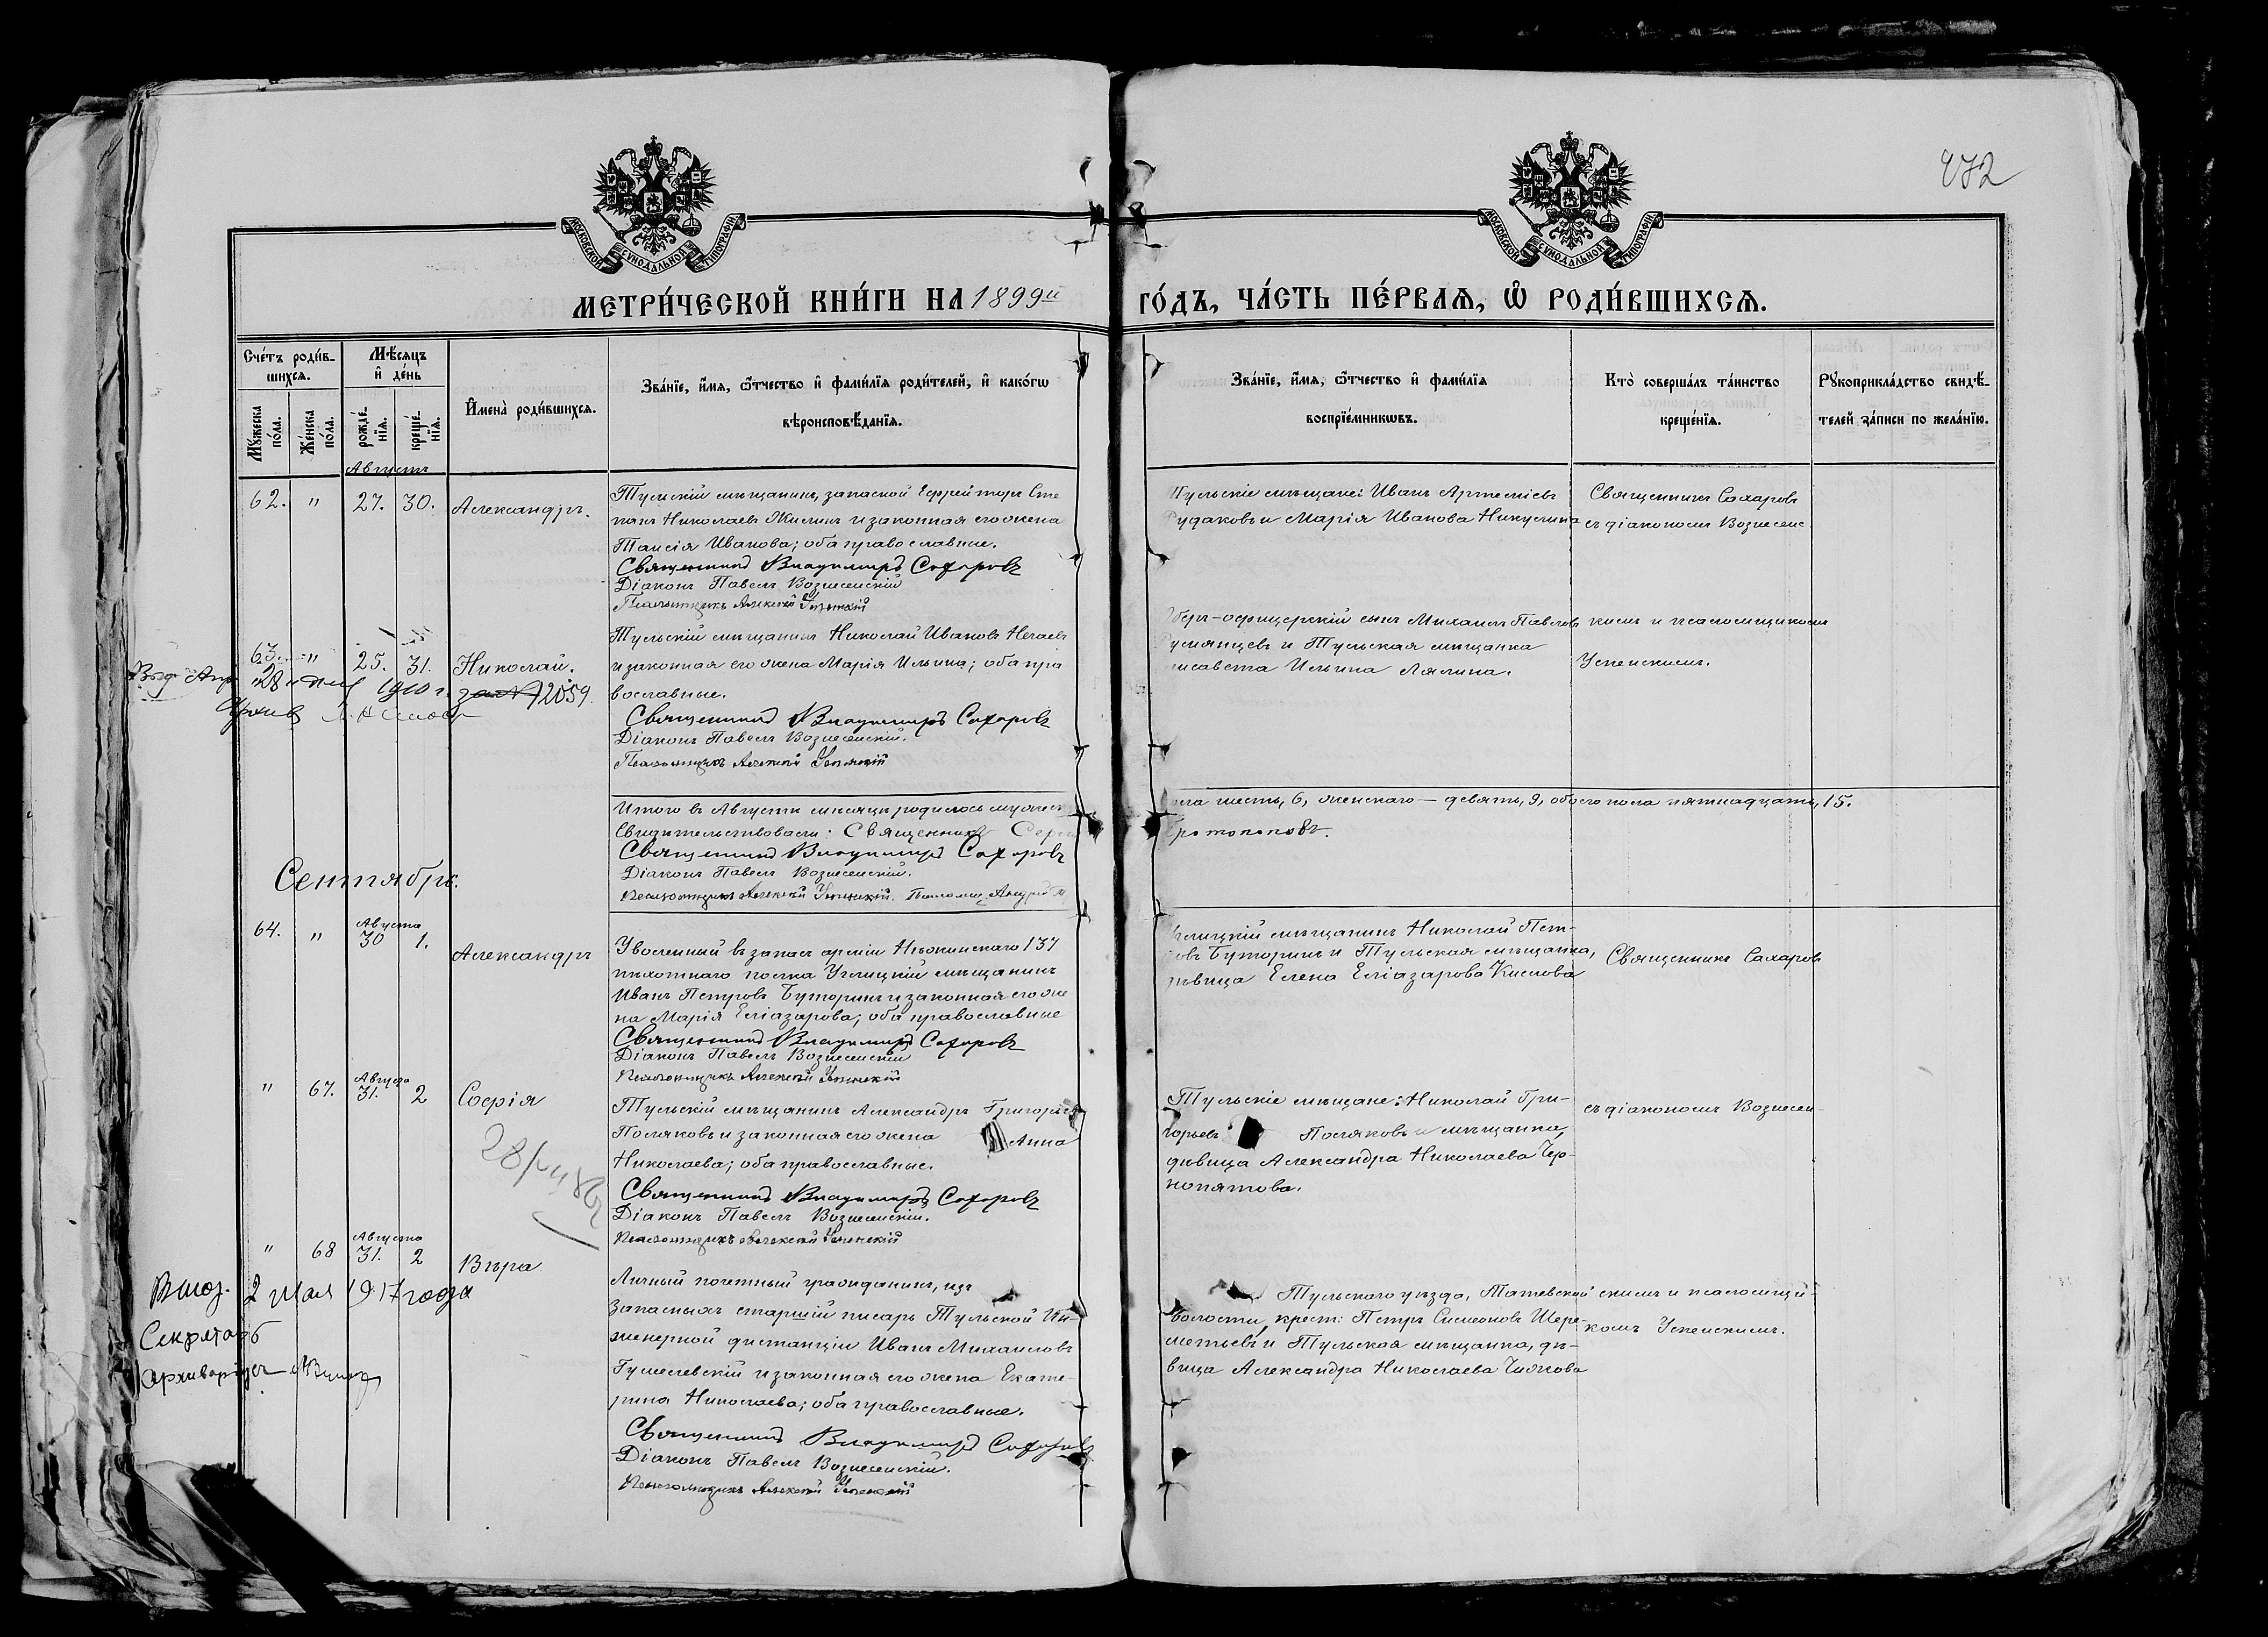 472
МОСКОВСКОЙ СУНОДАЛЬНОЙ ТИПОГРАФІИ
МОСКОВСКОЙ СУНОДАЛЬНОЙ ТИПОГРАФІИ
МЕТРИ́ЧЕСКОЙ КНИ́ГИ НА 1899й
ГО́ДЪ, ЧА́СТЬ ПЕ́РВАѦ, Ѡ҆ РОДИ́ВШИХСѦ.
Сче́тъ роди́в-
шихся.
Мѣ́сяцъ
и҆ де́нь
Мꙋ́жеска
по́ла.
Же́нска
по́ла.
рожде́-
нїя.
креще́-
нїя.
И҆мена̀ роди́вшихся.
Зва́нїе, и҆́мя, ѻ҆́тчество и҆ фами́лїя роди́телей, и҆ како́гѡ
вѣроисповѣ́данїя.
Зва́нїе, и҆́мя, ѻ҆́тчество и҆ фами́лїя
воспрїе́мникѡвъ.
Кто̀ соверша́лъ та́инство
креще́нїя.
Рꙋкоприкла́дство свидѣ́-
телей за́писи по жела́нїю.
Августъ
62. " 27. 30. Александръ.
Тульскій мѣщанинъ, запасной Ефрейторъ Сте
панъ Николаевъ Жилинъ и законная его жена
Таисія Иванова; оба православные.
Священникъ Владимиръ Сахаровъ
Діаконъ Павелъ Вознесенскій
Псаломщикъ Алексѣй Успенскій
Тульскіе мѣщане: Иванъ Артеміевъ
Рудаковъ и Марія Иванова Никулина
Священникъ Сахаровъ
съ діакономъ Вознесенс
63. " 25. 31. Николай.
Тульскій мѣщанинъ Николай Ивановъ Нечаевъ
и законная его жена Марія Ильина; оба пра
вославные.
Священникъ Владимиръ Сахаровъ
Діаконъ Павелъ Вознесенскій.
Псаломщикъ Алексѣй Успенскій
Оберъ-офицерскій сынъ Михаилъ Павловъ
Румянцевъ и Тульская мѣщанка
лисавета Ильина Лялина.
кимъ и псаломщикомъ
Успенскимъ.
28 1910 г. 12059.
Итого въ Августѣ мѣсяцѣ родилось мужеск
пола шесть, 6, женскаго — девять, 9, обоего пола пятнадцать, 15.
Свидѣтельствовали: Священникъ Серг
Протопоповъ.
Священникъ Владимиръ Сахаровъ
Діаконъ Павелъ Вознесенскій.
Псаломщикъ Алексѣй Успенскій. Псаломщ. Андрей
Сентябрь.
64. " Августа 30 1. Александръ
Уволенный въ запасъ арміи Нѣжинскаго 137
пѣхотнаго полка Углицкій мѣщанинъ
Иванъ Петровъ Буторинъ и законная его же
на Марія Еліазарова; оба православные
Священникъ Владимиръ Сахаровъ
Діаконъ Павелъ Вознесенскій
Псаломщикъ Алексѣй Успенскій
Углицкій мѣщанинъ Николай Пет-
ровъ Буторинъ и Тульская мѣщанка,
дѣвица Елена Еліазарова Кислова
Священникъ Сахаровъ
" 67. Августа 31. 2 Софія
Тульскій мѣщанинъ Александръ Григорьев
Поляковъ и законная его жена Анна
Николаева; оба православные.
Священникъ Владимиръ Сахаровъ
Діаконъ Павелъ Вознесенскій.
Псаломщикъ Алексѣй Успенскій
Тульскіе мѣщане: Николай Гри-
горьевъ Поляковъ и мѣщанка,
дѣвица Александра Николаева Чер-
нопятова.
съ діакономъ Вознесен-
" 68 Августа 31. 2 Вѣра
Личный почетный гражданинъ, изъ
запасныхъ старшій писарь Тульской Ин-
женерной дистанціи Иванъ Михаиловъ
Гумелевскій и законная его жена Екате-
рина Николаева; оба православные.
Священникъ Владимиръ Сахаровъ
Діаконъ Павелъ Вознесенскій.
Псаломщикъ Алексѣй Успенскій
Тульскаго уѣзда, Татевской
волости, крест: Петръ Симеоновъ Шере-
метьевъ и Тульская мѣщанка, дѣ-
вица Александра Николаева Чижова
скимъ и псаломщи-
комъ Успенскимъ.
2 Мая 1917 года
Секретарь
Архиваріусъ